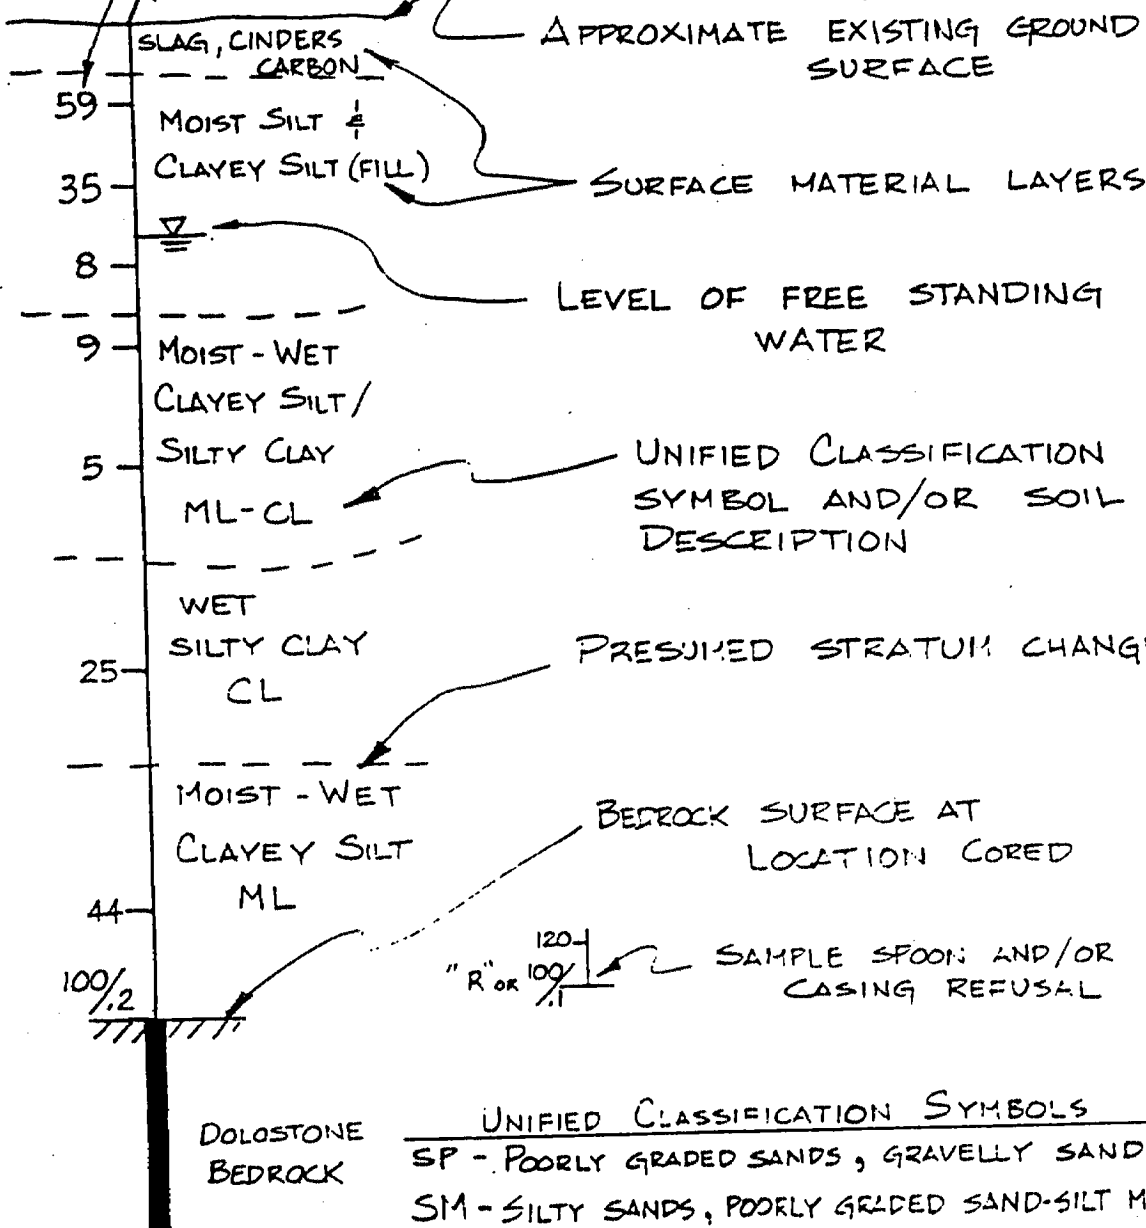 APPROXIMATE EXISTING GROUND
SURFACE
SLAG, CINDERS
CARBON
59
MOIST SILT &
CLAYEY SILT (FILL)
35
SURFACE MATERIAL LAYERS
8
LEVEL OF FREE STANDING
WATER
9
MOIST - WET
CLAYEY SILT/
SILTY CLAY
5
ML-CL
UNIFIED CLASSIFICATION
SYMBOL AND/OR SOIL
DESCRIPTION
WET
SILTY CLAY
25
CL
PRESUMED STRATUM CHANG
MOIST - WET
CLAYEY SILT
ML
44
BEDROCK SURFACE AT
LOCATION CORED
100/.2
120
"R" OR 100/.1
SAMPLE SPOON AND/OR
CASING REFUSAL
DOLOSTONE
BEDROCK
UNIFIED CLASSIFICATION SYMBOLS
SP - POORLY GRADED SANDS, GRAVELLY SAND
SM - SILTY SANDS, POORLY GRADED SAND-SILT M